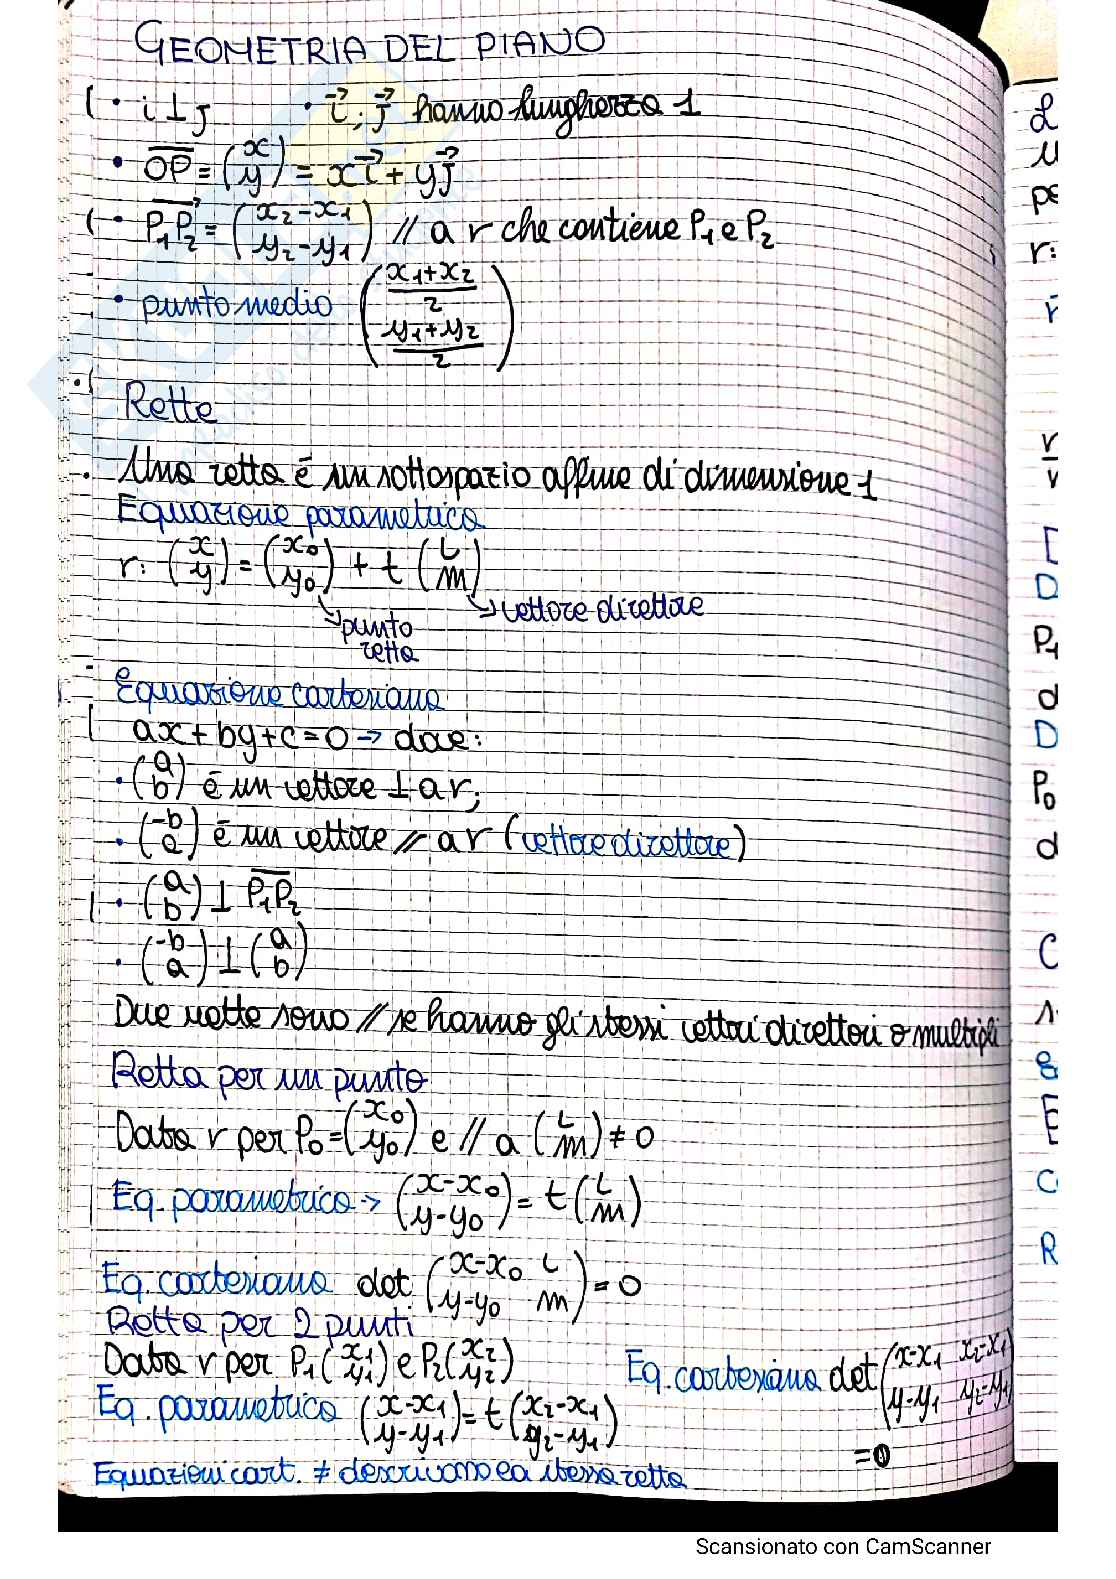 GEOMETRIA DEL PIANO
• i ⊥ j • i⃗, j⃗ hanno lunghezza 1
• OP = (x y) = xi⃗ + yj⃗
• P₁P₂ = (x₂-x₁ y₂-y₁) // a r che contiene P₁ e P₂
• punto medio ((x₁+x₂)/2 (y₁+y₂)/2)
Rette
Una retta é un sottospazio affine di dimensione 1
Equazione parametrica
r: (x y) = (x₀ y₀) + t (l m)
→ vettore direttore
↘ punto
retta
Equazione cartesiana
ax+by+c=0 → dove:
• (a b) é un vettore ⊥ a r;
• (-b a) é un vettore // a r (vettore direttore)
• (a b) ⊥ P₁P₂
• (-b a) ⊥ (a b)
Due rette sono // se hanno gli stessi vettori direttori o multipli
Retta per un punto
Data r per P₀ = (x₀ y₀) e // a (l m) ≠ 0
Eq. parametrica → (x-x₀ y-y₀) = t (l m)
Eq. cartesiana det (x-x₀ l y-y₀ m) = 0
Retta per 2 punti
Data r per P₁ (x₁ y₁) e P₂ (x₂ y₂)
Eq. parametrica (x-x₁ y-y₁) = t (x₂-x₁ y₂-y₁)
Eq. cartesiana det (x-x₁ x₂-x₁ y-y₁ y₂-y₁)
=0
Equazioni cart. ≠ descrivono la stessa retta
Scansionato con CamScanner